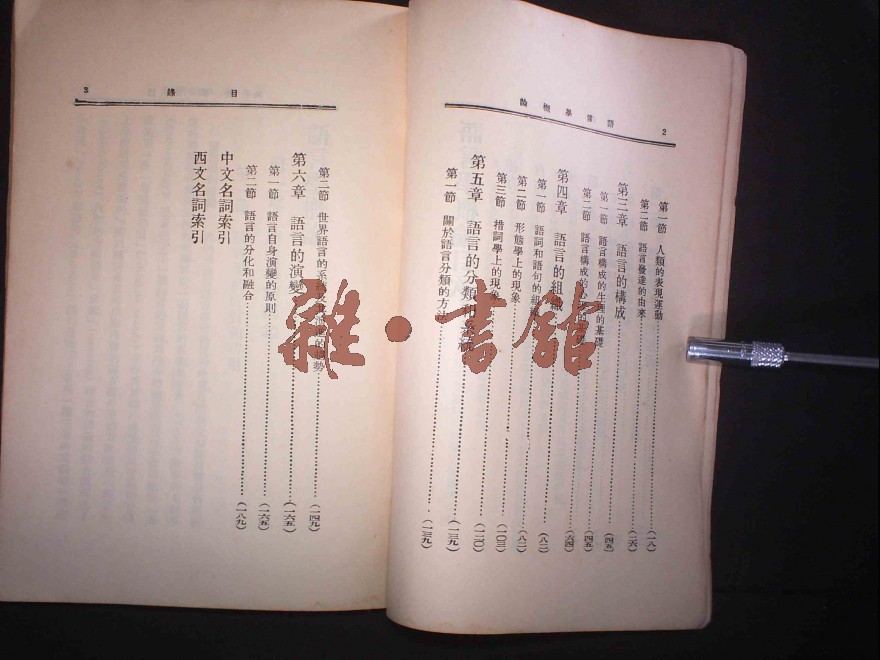 語言學概論 2
第一節 人類的表現運動……(一八)
第二節 語言發達的由來……(二六)
第三章 語言的構成……(四五)
第一節 語言構成的生理的基礎……(四五)
第二節 語言構成的心理的基礎……(六四)
第四章 語言的組織……(八二)
第一節 語詞和語句的組織……(八二)
第二節 形態學上的現象……(一〇三)
第三節 措詞學上的現象……(一二〇)
第五章 語言的分類和系統……(一三九)
第一節 關於語言分類的方法……(一三九)
目錄 3
第二節 世界語言的系 的趨勢……(一四九)
第六章 語言的演變……(一六五)
第一節 語言自身演變的原則……(一六五)
第二節 語言的分化和融合……(一八九)
中文名詞索引
西文名詞索引
雜·書館